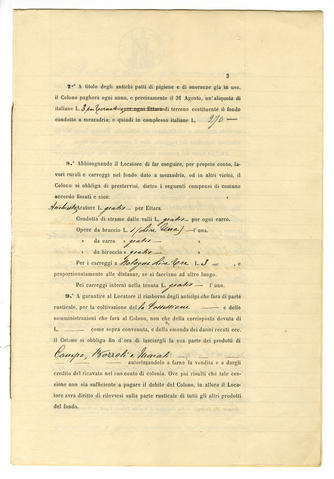 3
7.° A titolo degli antichi patti di pigione e di onoranze già in uso,
il Colono pagherà ogni anno, e precisamente il 31 Agosto, un'aliquota di
italiane L. 3 per ogni ettaro di terreno costituente il fondo
condotto a mezzadria; e quindi in complesso italiane L. 270 —
8.° Abbisognando il Locatore di far eseguire, per proprio conto, la-
vori rurali e carreggi nel fondo dato a mezzadria, od in altri vicini, il
Colono si obbliga di prestarvisi, dietro i seguenti compensi di comune
accordo fissati e cioè:
ature L. gratis — per Ettara.
Condotta di strame dalle valli L. gratis — per ogni carro.
Opere da braccio L. 1 (Lire Una) — l'una.
» da carro » gratis — »
» da biroccio » gratis — »
Per i carreggi a Bologna Lire tre L. 3 — e
proporzionatamente alle distanze, se si facciano ad altro luogo.
Pei carreggi interni nella tenuta L. gratis — l'uno.
9.° A garantire al Locatore il rimborso degli anticipi che farà di parte
rusticale, per la coltivazione del la Possessione e delle
somministrazioni che farà al Colono, non che della corrisposta dovuta di
L. — come sopra convenuta, e della emenda dei danni recati ecc.
il Colono si obbliga fin d'ora di lasciargli la sua parte dei prodotti di
Canapa, Bozzoli e Maiali
autorizzandolo a farne la vendita e a dargli
credito del ricavato nel suo conto di colonia. Ove poi risulti che tale ces-
sione non sia sufficiente a pagare il debito del Colono, in allora il Loca-
tore avrà diritto di rilevarsi sulla parte rusticale di tutti gli altri prodotti
del fondo.